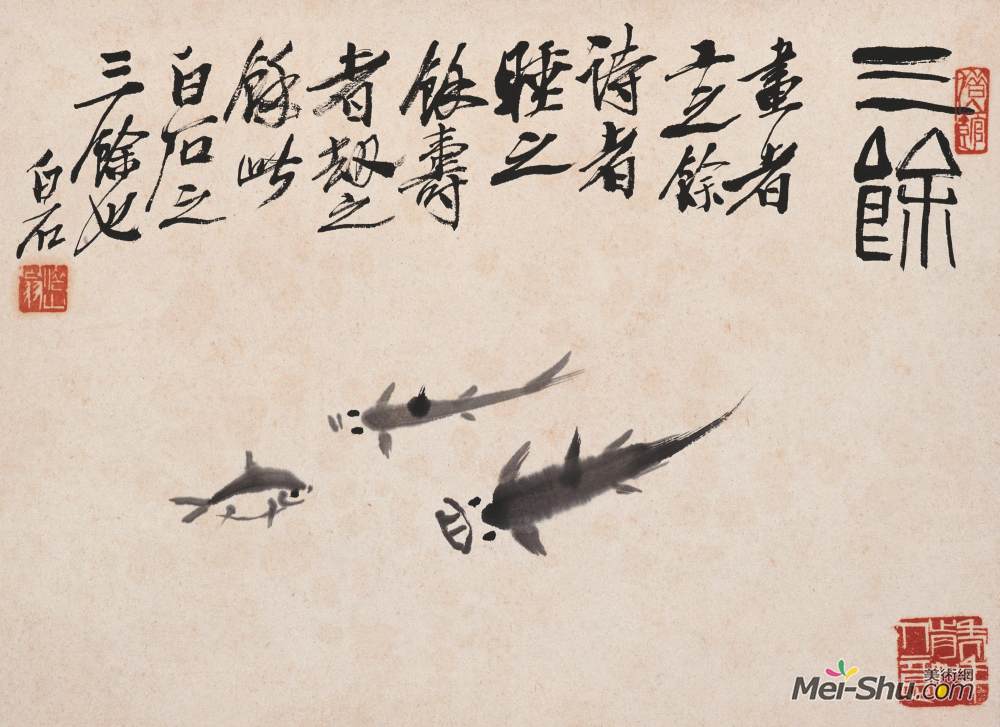 三餘
畫者
工之餘
詩者
睡之
餘壽
者劫之
餘此
白石之
三餘也
白石
借山翁
美術網
Mei-Shu.com